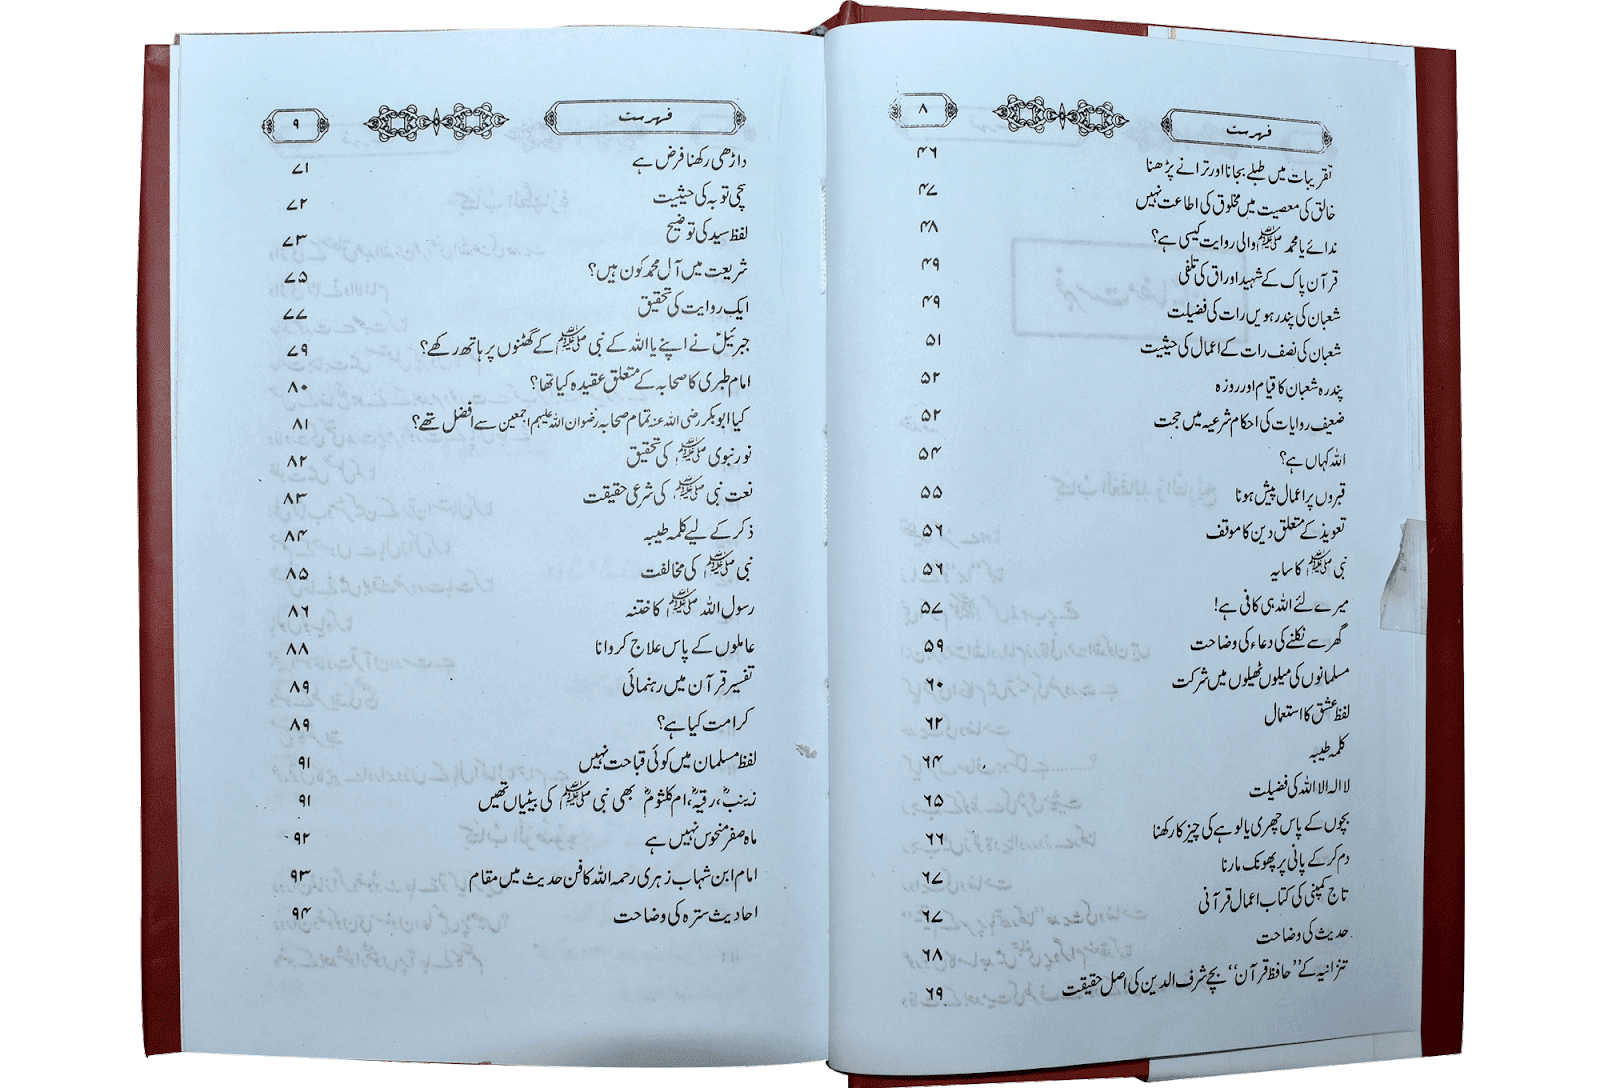 فہرست ۸
تقریبات میں طبلے بجانا اور ترانے پڑھنا ۴۶
خالق کی معصیت میں مخلوق کی اطاعت نہیں ۴۷
ندائے یا محمد ﷺ والی روایت کیسی ہے؟ ۴۸
قرآن پاک کے شہید اوراق کی تلفی ۴۹
شعبان کی پندرھویں رات کی فضیلت ۴۹
شعبان کی نصف رات کے اعمال کی حیثیت ۵۱
پندرہ شعبان کا قیام اور روزہ ۵۲
ضعیف روایات کی احکام شرعیہ میں حجت ۵۲
اللہ کہاں ہے؟ ۵۴
قبروں پر اعمال پیش ہونا ۵۵
تعویذ کے متعلق دین کا موقف ۵۶
نبی ﷺ کا سایہ ۵۶
میرے لئے اللہ ہی کافی ہے! ۵۷
گھر سے نکلنے کی دعاء کی وضاحت ۵۹
مسلمانوں کی میلوں ٹھیلوں میں شرکت ۶۰
لفظ عشق کا استعمال ۶۲
کلمہ طیبہ ۶۴
لا الہ الا اللہ کی فضیلت ۶۵
بچوں کے پاس چھری یا لوہے کی چیز کا رکھنا ۶۶
دم کر کے پانی پر پھونک مارنا ۶۷
تاج کمپنی کی کتاب اعمال قرآنی ۶۷
حدیث کی وضاحت ۶۸
تنزانیہ کے ’’حافظ قرآن‘‘ بچے شرف الدین کی اصل حقیقت ۶۹
فہرست ۹
داڑھی رکھنا فرض ہے ۷۱
سچی توبہ کی حیثیت ۷۲
لفظ سید کی توضیح ۷۳
شریعت میں آل محمد کون ہیں؟ ۷۵
ایک روایت کی تحقیق ۷۷
جبرئیلؑ نے اپنے یا اللہ کے نبی ﷺ کے گھٹنوں پر ہاتھ رکھے؟ ۷۹
امام طبری کا صحابہ کے متعلق عقیدہ کیا تھا؟ ۸۰
کیا ابوبکر رضی اللہ عنہ تمام صحابہ رضوان اللہ علیہم اجمعین سے افضل تھے؟ ۸۱
نور نبوی ﷺ کی تحقیق ۸۲
نعت نبی ﷺ کی شرعی حقیقت ۸۳
ذکر کے لیے کلمہ طیبہ ۸۴
نبی ﷺ کی مخالفت ۸۵
رسول اللہ ﷺ کا ختنہ ۸۶
عاملوں کے پاس علاج کروانا ۸۸
تفسیر قرآن میں رہنمائی ۸۹
کرامت کیا ہے؟ ۸۹
لفظ مسلمان میں کوئی قباحت نہیں ۹۱
زینبؓ، رقیہؓ، ام کلثومؓ بھی نبی ﷺ کی بیٹیاں تھیں ۹۱
ماہ صفر منحوس نہیں ہے ۹۲
امام ابن شہاب زہری رحمہ اللہ کا فن حدیث میں مقام ۹۳
احادیث سترہ کی وضاحت ۹۴